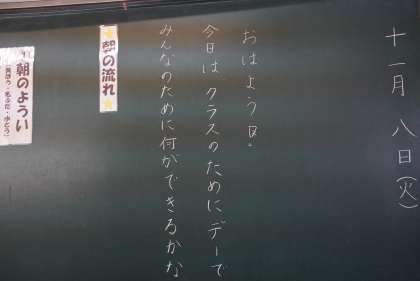 十一月 八日(火)
おはよう日.
今日は クラスのためにデーで
みんなのために何ができるかな
朝の流れ
朝のようい